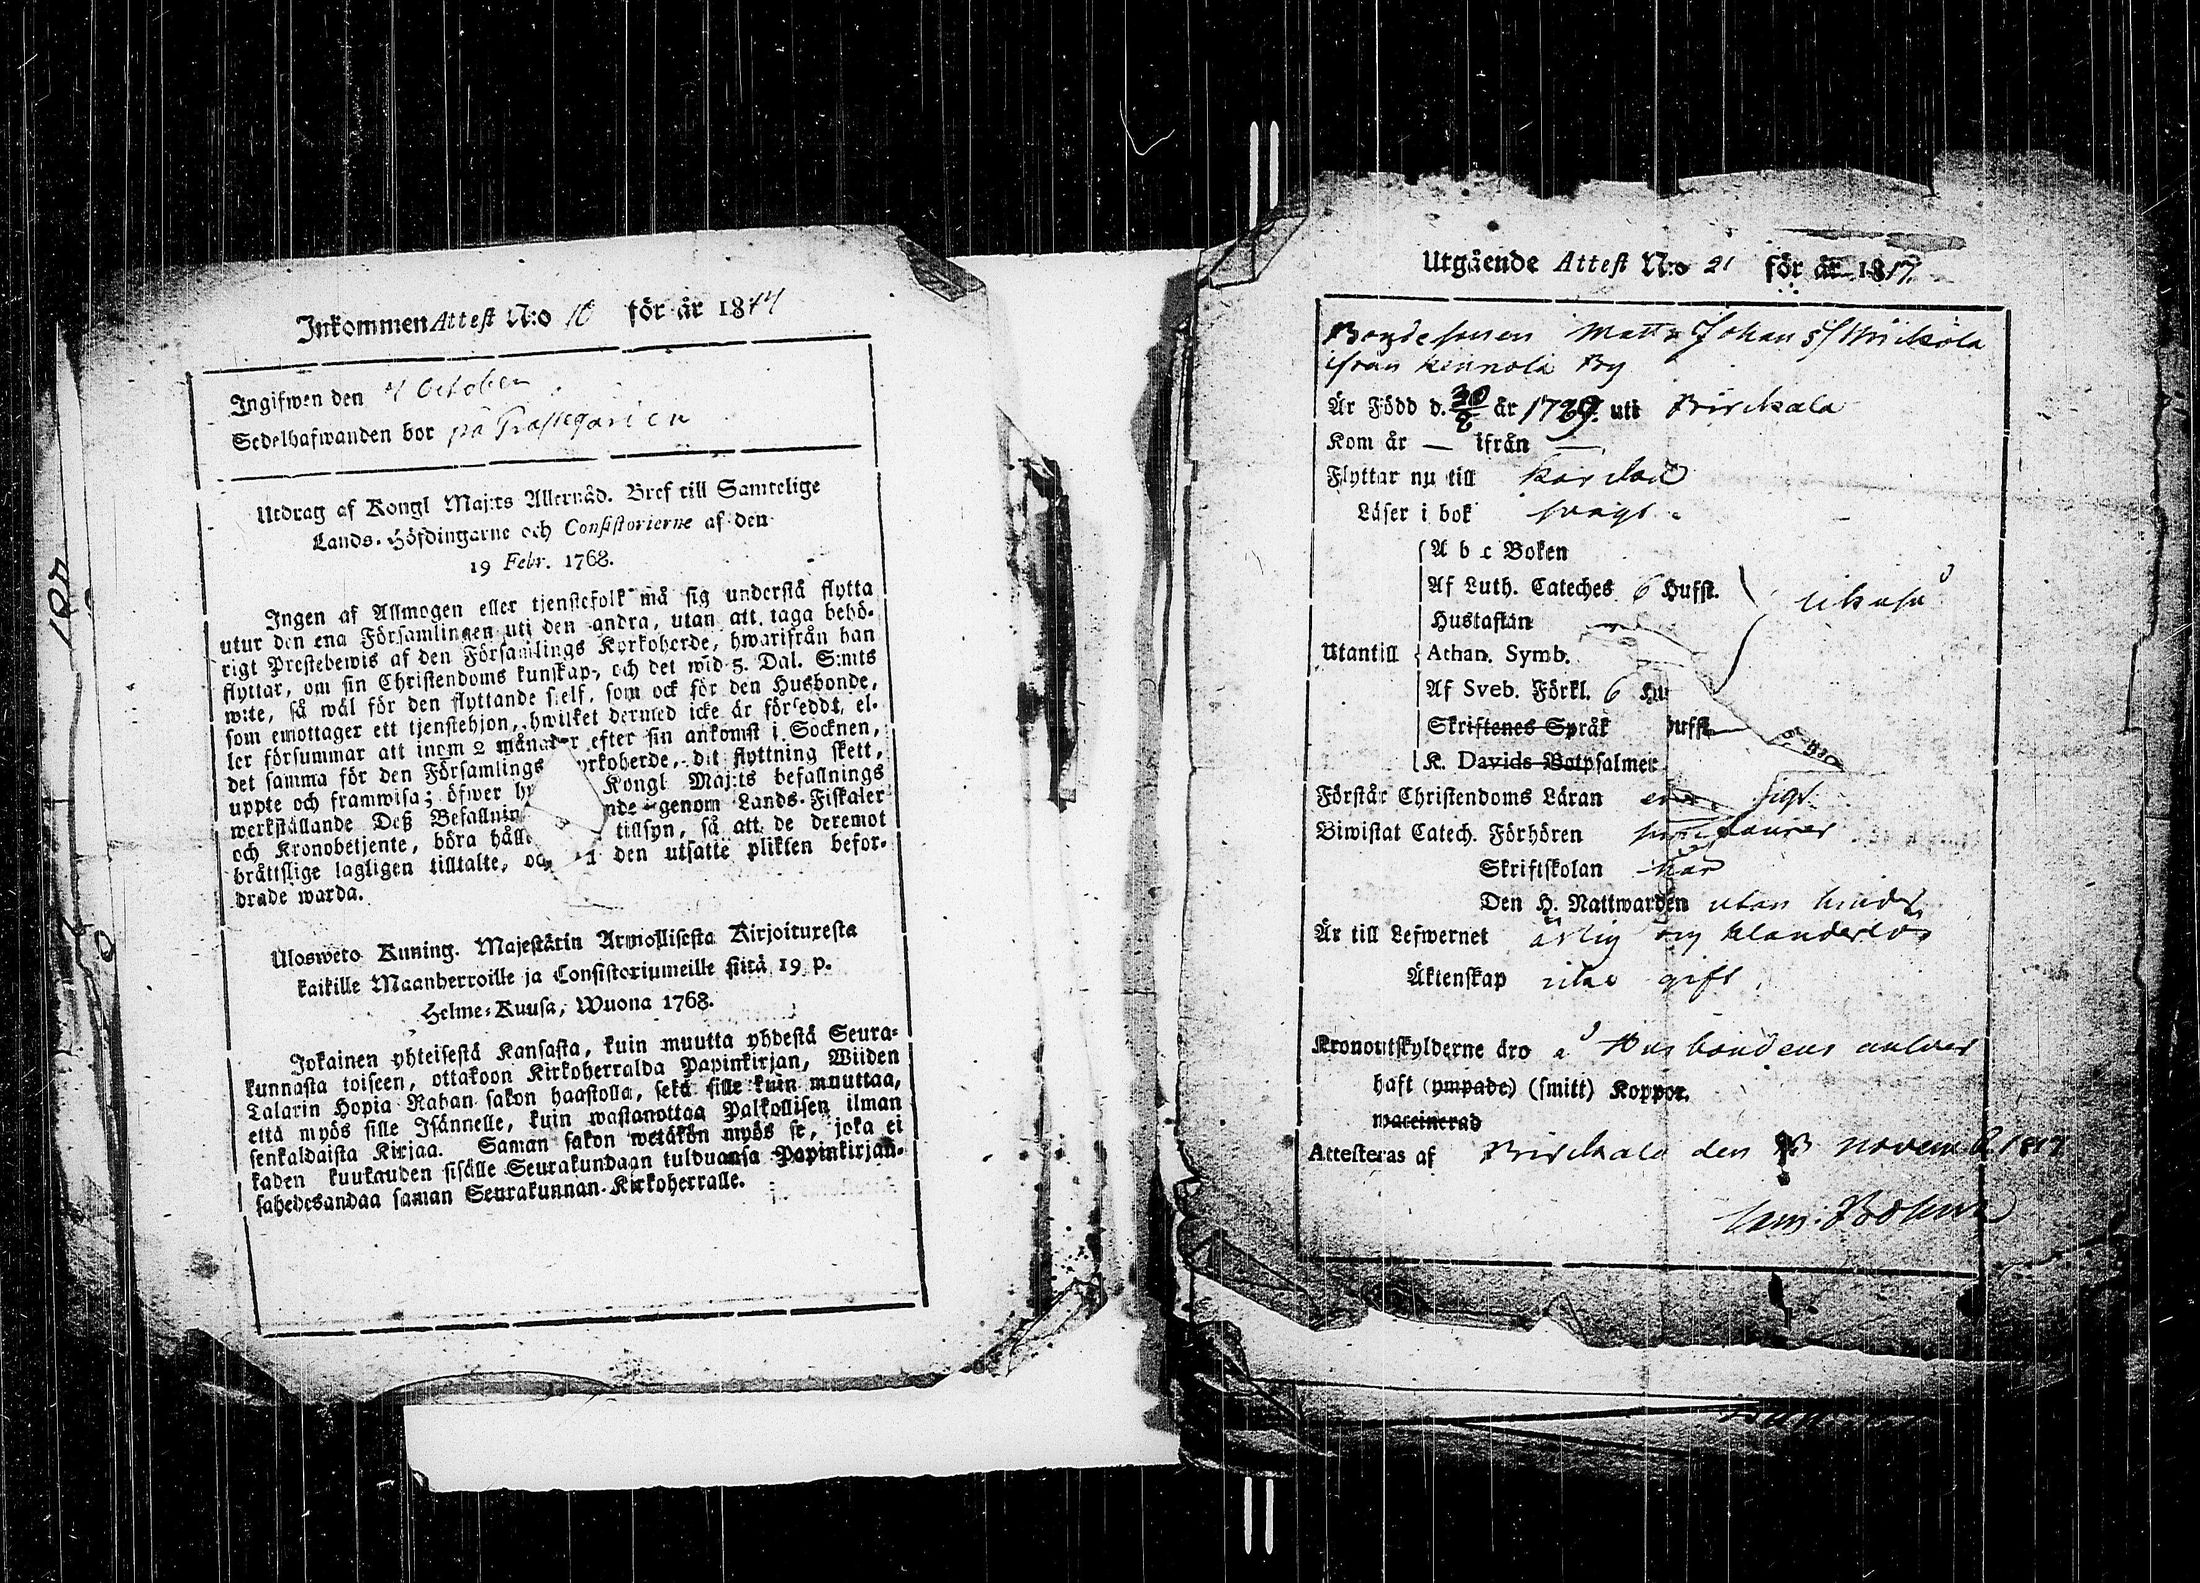 Inkommen Attest N:o 10 för år 1844
Ingifwen den 4 October
Sedelhafwanden bor på Prästegården
Utdrag af Kongl Maj:ts Allernåd. Bref till Samtelige
Lands-Höfdingarne och Consistorierne af den
19 Febr. 1768.
Ingen af Allmogen eller tjenstefolk må sig understå flytta
utur den ena Församlingen uti den andra, utan att taga behö-
rigt Prestebewis af den Församlings Kyrkoherde, hwarifrån han
flyttar, om sin Christendoms kunskap, och det wid 5. Dal. S:mts
wite, så wäl för den flyttande sielf, som ock för den Husbonde,
som emottager ett tjenstehjon, hwilket dermed icke är försedt, el-
ler försummar att inom 2 månader efter sin ankomst i Socknen,
det samma för den Församlings yrkoherde, dit flyttning skett,
uppte och framwisa; öfwer Kongl Maj:ts befallnings
werkställande Deß Befallnin nde genom Lands-Fiskaler
och Kronobetjente, böra hålla tillsyn, så att de deremot
brättslige lagligen tilltalte, oc den utsatte plikten befor-
drade warda.
Ulosweto Kuning. Majestätin Armollisesta Kirjoituxesta
kaikille Maanherroille ja Consistoriumeille siitä 19 p.
Helme-Kuusa, Wuona 1768.
Jokainen yhteisestä Kansasta, kuin muutta yhdestä Seura-
kunnasta toiseen, ottakoon Kirkoherralda Papinkirjan, Wiiden
Talarin Hopia Rahan sakon haastolla, sekä sille kuin muuttaa,
että myös sille Isännelle, kuin wastanottaa Palkollisen ilman
senkaldaista Kirjaa. Saman sakon wetäkön myös se, joka ei
kaden kuukauden sisälle Seurakundaan tulduansa Papinkirjan-
sahedesandaa saman Seurakunnan Kirkoherralle.
Utgående Attest N:o 21 för år 1817.
Bondesonen Matts Johans s/ Mickola
ifrån Kinnola By
Är Född d. 30 är 1789. uti Birckala
Kom år — ifrån —
Flyttar nu till Karkku
Läser i bok svagt.
A b c Boken
Af Luth. Cateches 6 Hufst.
Hustaflan
Utantill Athan. Symb.
Af Sveb. Förkl. 6 Hu
Skriftenes Språk hufst
K. Davids Botpsalmer
Förstår Christendoms Läran
Biwistat Catech. Förhören
Skriftskolan här
Den H. Nattwarden utan hinder
Är till Lefwernet ärlig och klanderlös
Äktenskap icke gift
Kronoutskylderne äro å Husbondens answar
haft (ympade) (smitt) Koppor.
waccinerad
Attesteras af Birckala den novemb 1817
Sam: Bohm